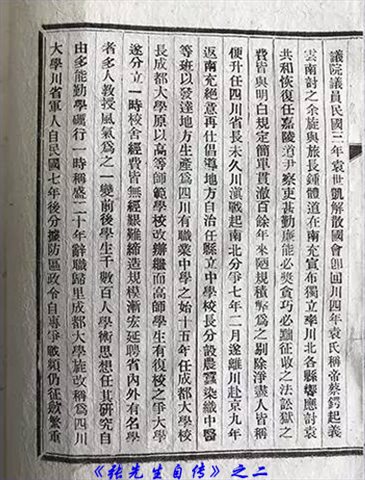 議院議員民國三年袁世凱解散國會卽回川四年袁氏稱帝蔡鍔起義
雲南討之余旋與旅長鍾體道在南充宣布獨立率川北各縣響應討袁
共和恢復任嘉陵道尹察吏甚勤廉能必奬貪巧必黜征收之法訟獄之
費皆與明白規定簡單貫澈百餘年來陋規積弊爲之剔除淨盡人皆稱
便升任四川省長未久川滇戰起南北分爭七年二月遂離川赴京九年
返南充絕意再仕倡導地方自治任縣立中學校長分設農蠶染織中醫
等班以發達地方生產爲四川有職業中學之始十五年任成都大學校
長成都大學原以高等師範學校改辦繼而高師學生有復校之爭大學
遂分立一時校舍經費皆無經艱難締造規模漸宏延聘省內外有名學
者多人教授風氣爲之一變前後學生千數百人學術思想任其研究自
由多能勤學礪行一時稱盛二十年辭職歸里成都大學旋改稱爲四川
大學川省軍人自民國七年後分據防區政令自專爭戰頻仍征斂繁重
《张先生自传》之二